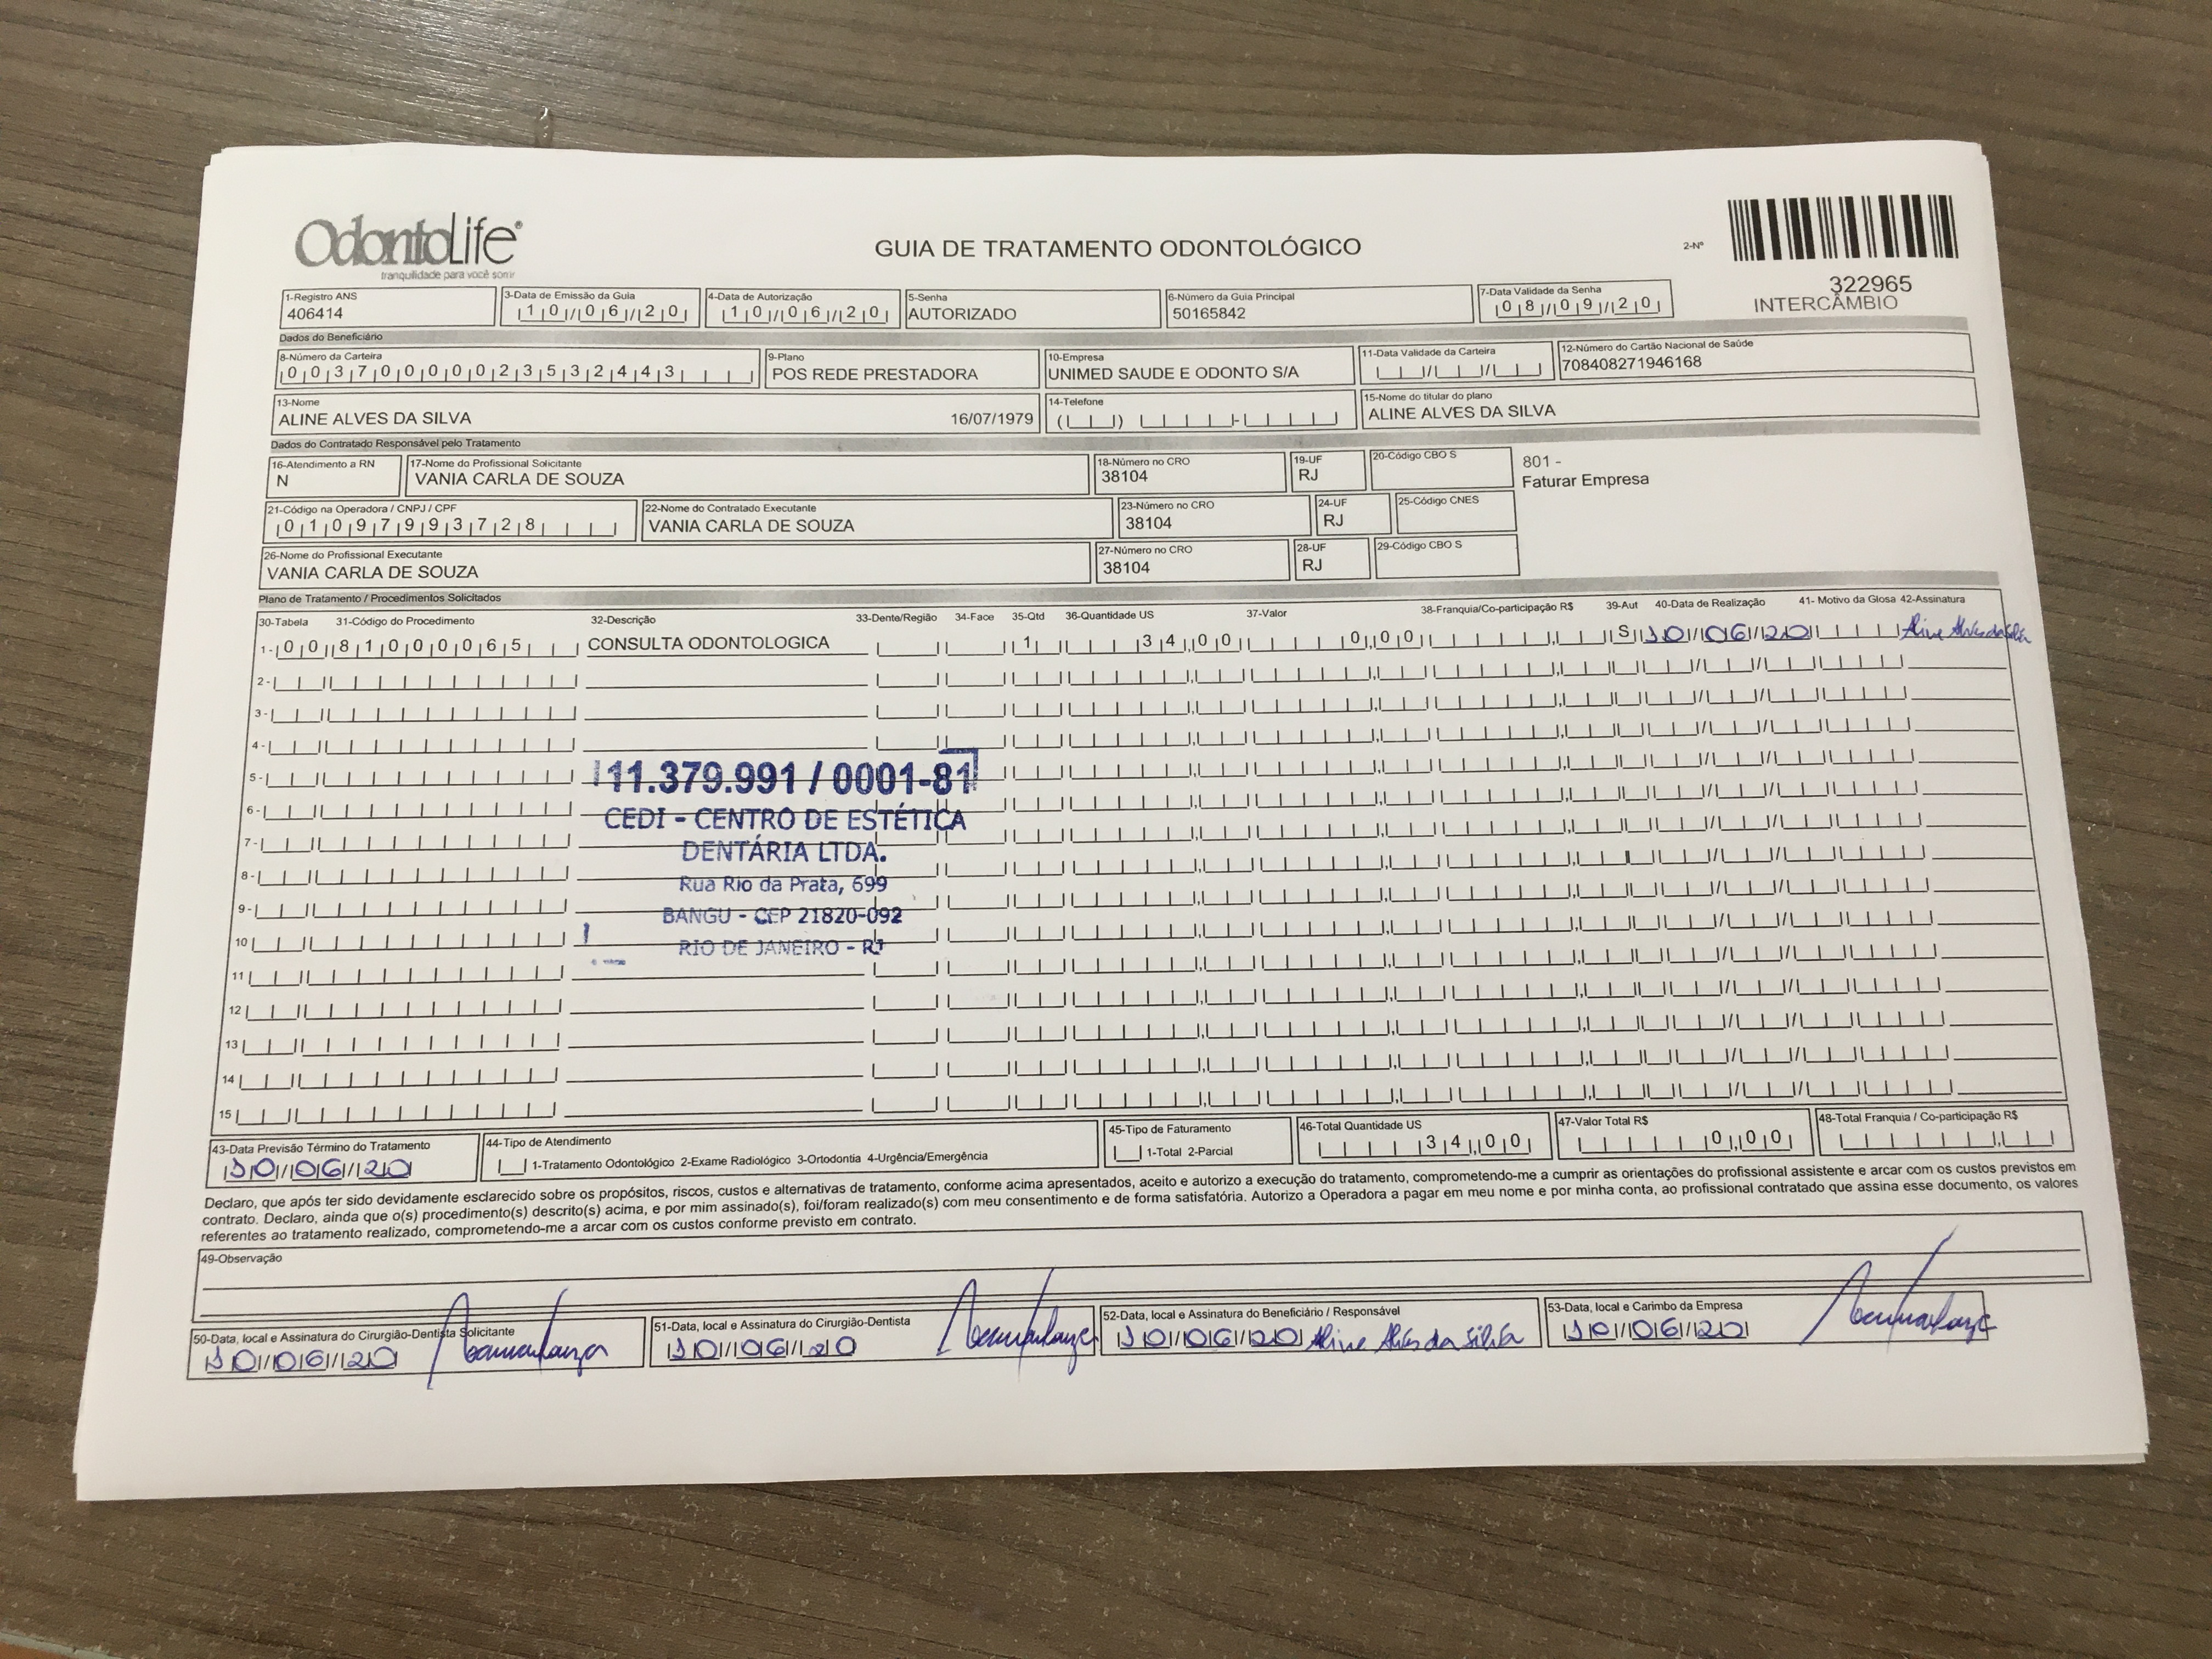 OdontoLife®
tranquilidade para você sorrir
GUIA DE TRATAMENTO ODONTOLÓGICO
2-Nº
322965
INTERCÂMBIO
1-Registro ANS
406414
3-Data de Emissão da Guia
10/06/20
4-Data de Autorização
10/06/20
5-Senha
AUTORIZADO
6-Número da Guia Principal
50165842
7-Data Validade da Senha
08/09/20
Dados do Beneficiário
8-Número da Carteira
00370000023532443
9-Plano
POS REDE PRESTADORA
10-Empresa
UNIMED SAUDE E ODONTO S/A
11-Data Validade da Carteira
12-Número do Cartão Nacional de Saúde
708408271946168
13-Nome
ALINE ALVES DA SILVA 16/07/1979
14-Telefone
15-Nome do titular do plano
ALINE ALVES DA SILVA
Dados do Contratado Responsável pelo Tratamento
16-Atendimento a RN
N
17-Nome do Profissional Solicitante
VANIA CARLA DE SOUZA
18-Número no CRO
38104
19-UF
RJ
20-Código CBO S
801 -
Faturar Empresa
21-Código na Operadora / CNPJ / CPF
01097993728
22-Nome do Contratado Executante
VANIA CARLA DE SOUZA
23-Número no CRO
38104
24-UF
RJ
25-Código CNES
26-Nome do Profissional Executante
VANIA CARLA DE SOUZA
27-Número no CRO
38104
28-UF
RJ
29-Código CBO S
Plano de Tratamento / Procedimentos Solicitados
30-Tabela 31-Código do Procedimento 32-Descrição 33-Dente/Região 34-Face 35-Qtd 36-Quantidade US 37-Valor 38-Franquia/Co-participação R$ 39-Aut 40-Data de Realização 41- Motivo da Glosa 42-Assinatura
1- 00 81000065 CONSULTA ODONTOLOGICA 1 34,00 0,00 S 10/06/20 Aline Alves da Silva
2-
3-
4-
5-
6-
7-
8-
9-
10
11
12
13
14
15
11.379.991 / 0001-81
CEDI - CENTRO DE ESTÉTICA
DENTÁRIA LTDA.
Rua Rio da Prata, 699
BANGU - CEP 21820-092
RIO DE JANEIRO - RJ
43-Data Previsão Término do Tratamento
10/06/20
44-Tipo de Atendimento
1-Tratamento Odontológico 2-Exame Radiológico 3-Ortodontia 4-Urgência/Emergência
45-Tipo de Faturamento
1-Total 2-Parcial
46-Total Quantidade US
34,00
47-Valor Total R$
0,00
48-Total Franquia / Co-participação R$
Declaro, que após ter sido devidamente esclarecido sobre os propósitos, riscos, custos e alternativas de tratamento, conforme acima apresentados, aceito e autorizo a execução do tratamento, comprometendo-me a cumprir as orientações do profissional assistente e arcar com os custos previstos em
contrato. Declaro, ainda que o(s) procedimento(s) descrito(s) acima, e por mim assinado(s), foi/foram realizado(s) com meu consentimento e de forma satisfatória. Autorizo a Operadora a pagar em meu nome e por minha conta, ao profissional contratado que assina esse documento, os valores
referentes ao tratamento realizado, comprometendo-me a arcar com os custos conforme previsto em contrato.
49-Observação
50-Data, local e Assinatura do Cirurgião-Dentista Solicitante
10/06/20
51-Data, local e Assinatura do Cirurgião-Dentista
10/06/20
52-Data, local e Assinatura do Beneficiário / Responsável
10/06/20 Aline Alves da Silva
53-Data, local e Carimbo da Empresa
10/06/20